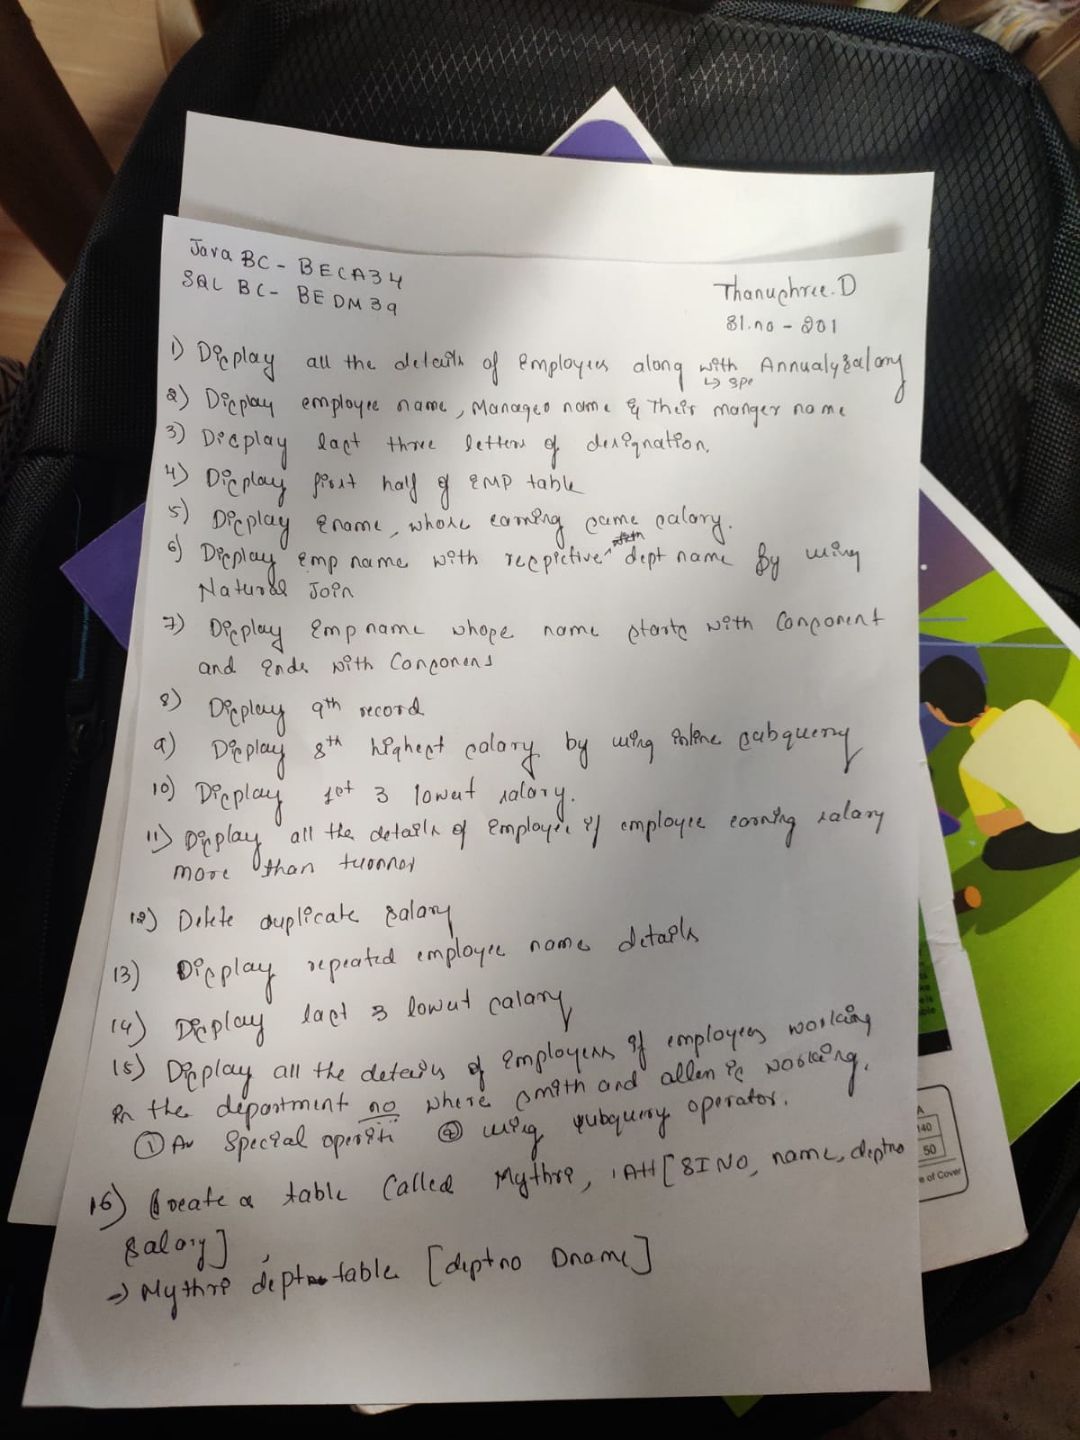 Java BC - BECA34
SQL BC - BEDM39
Thanushree.D
Sl.no - 201
1) Display all the details of Employees along with Annualy salary
↳ spe
2) Display employee name, Manager name & Their manger name
3) Display last three letters of designation.
4) Display first half of EMP table
5) Display Ename, whose earning same salary.
6) Display Emp name with respictive dept name By using
Natural Join
7) Display Emp name whose name starts with Consonent
and Ends with Consonens
8) Display 9th record
9) Display 8th highest salary by using inline subquery
10) Display 1st 3 lowest salary.
11) Display all the details of Employee if employee earning salary
more than turnner
12) Delete duplicate salary
13) Display repeated employee name details
14) Display last 3 lowest salary
15) Display all the details of Employees if employees working
in the department no where smith and allen is working.
① Special ② using subquery operator.
16) Create a table called Mythri, [SI NO, name, deptno
salary]
→ Mythri dept table [deptno Dname]
140
50
e of Cover